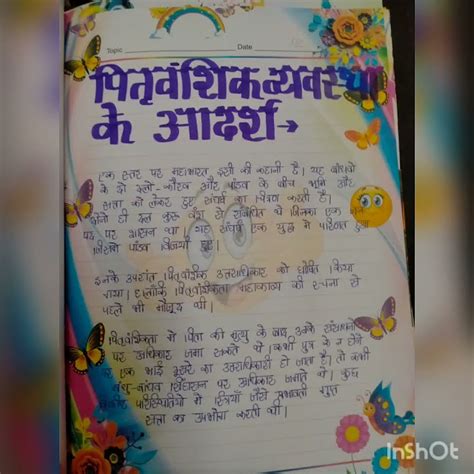 Topic Date
पितृवंशिक व्यवस्था
के आदर्श →
एक स्तर पर महाभारत इसी की कहानी है। यह बांधवो
के दो दलो- कौरव और पांडव के बीच भूमि और
सत्ता को लेकर हुए संघर्ष का चित्रण करती है।
दोनो ही दल कुरु वंश से संबंधित थे जिनका एक
पद पर शासन था। यह संघर्ष एक युद्ध में परिणत हुआ
जिसमे पांडव विजयी हुए।
इनके उपरांत पितृवंशिक उत्तराधिकार को घोषित किया
गया। हालाँकि पितृवंशिकता महाकाव्य की रचना से
पहले भी मौजूद थी।
पितृवंशिकता मे पिता की मृत्यु के बाद उनके संसाधनो
पर अधिकार जमा सकते थे। कभी पुत्र के न होने
पर एक भाई दूसरे का उत्तराधिकारी हो जाता है। तो कभी
बंधु-बांधव सिंहासन पर अधिकार जमाते थे। कुछ
परिस्थितियो मे स्त्रियाँ जैसे प्रभावती गुप्त
सत्ता का उपभोग करती थी।
InShOt